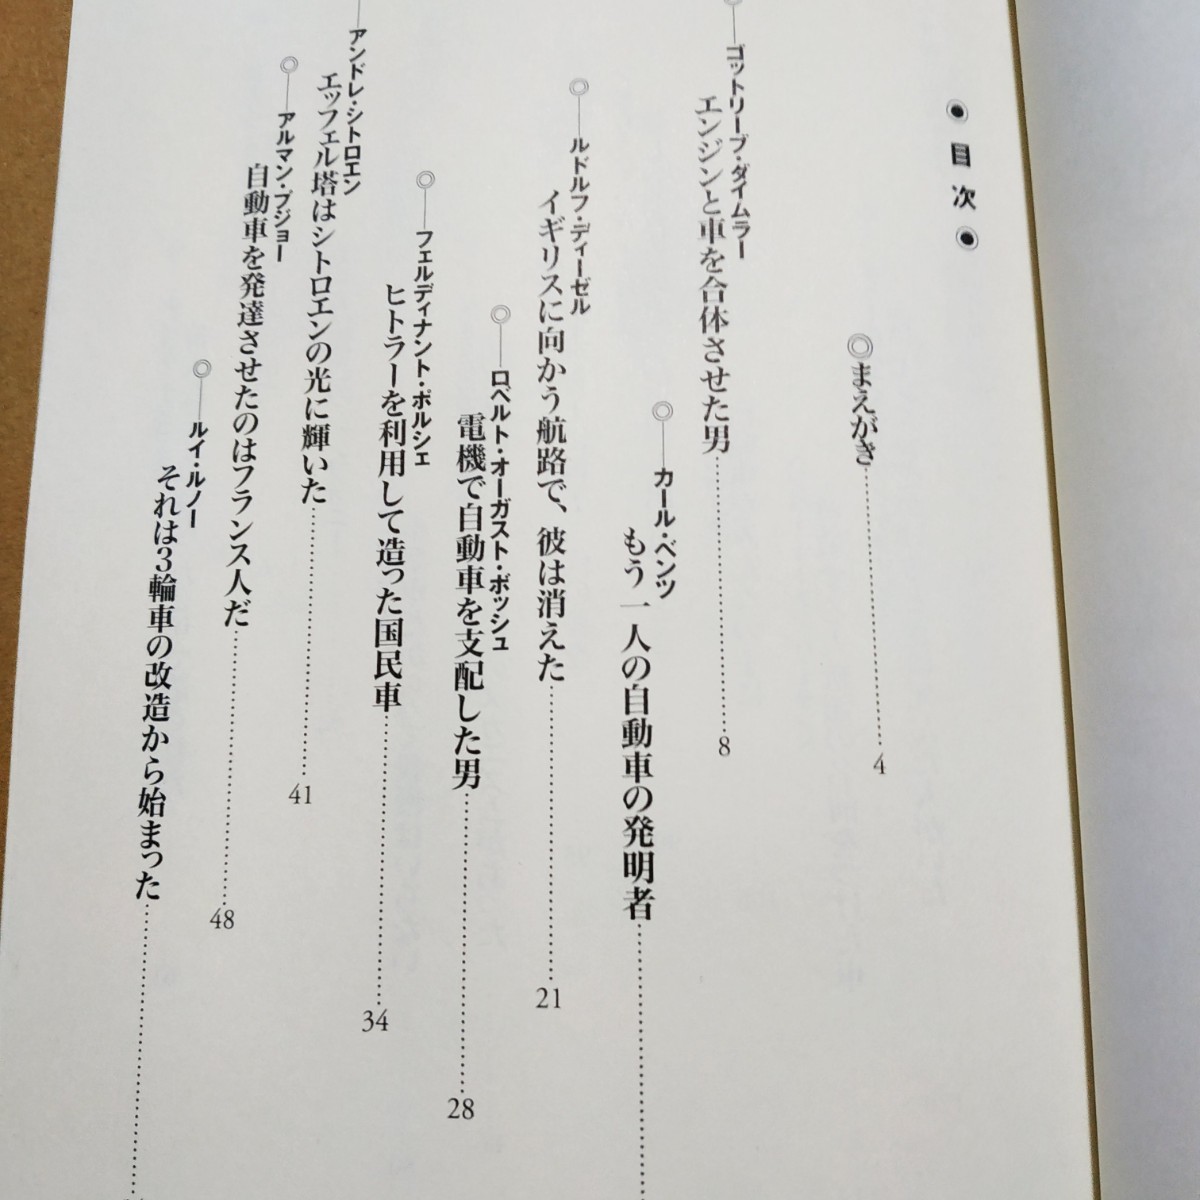 ●目次●
◎まえがき 4
◎ゴットリーブ・ダイムラー
エンジンと車を合体させた男 8
◎カール・ベンツ
もう一人の自動車の発明者
◎ルドルフ・ディーゼル
イギリスに向かう航路で、彼は消えた 21
◎ロベルト・オーガスト・ボッシュ
電機で自動車を支配した男 28
◎フェルディナント・ポルシェ
ヒトラーを利用して造った国民車 34
アンドレ・シトロエン
エッフェル塔はシトロエンの光に輝いた 41
◎アルマン・プジョー
自動車を発達させたのはフランス人だ 48
◎ルイ・ルノー
それは3輪車の改造から始まった